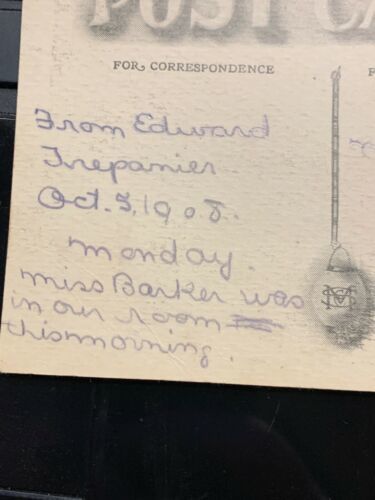 POST CA
FOR CORRESPONDENCE
F
From Edward
Trepanier
Oct. 5, 1908.
monday.
miss Barker was
in our room
this morning.